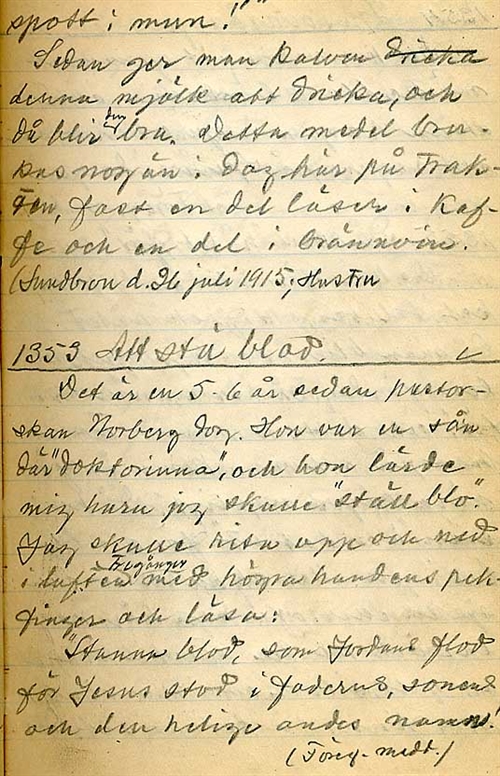 spott i mun!"
Sedan ger man kalven dricka
denna mjölk att dricka, och
då blir den bra. Detta medel bru-
kas nog än i dag här på trak-
ten, fast en del läser i kaf-
fe och en del i brännvin.
(Sundbron d. 26 juli 1915; Hustru
1353 Att stä blod.
Det är en 5-6 år sedan pastor-
skan Norberg dog. Hon var en sån
där "doktorinna", och hon lärde
mig huru jag skulle "ställ blo".
Jag skulle rita opp och ned
i luften tre gånger med högra handens pek-
finger och läsa:
"Stanna blod, som Jordans flod
för Jesus stod i faderns, sonens
och den helige andes namn!
(Föreg. medd.)